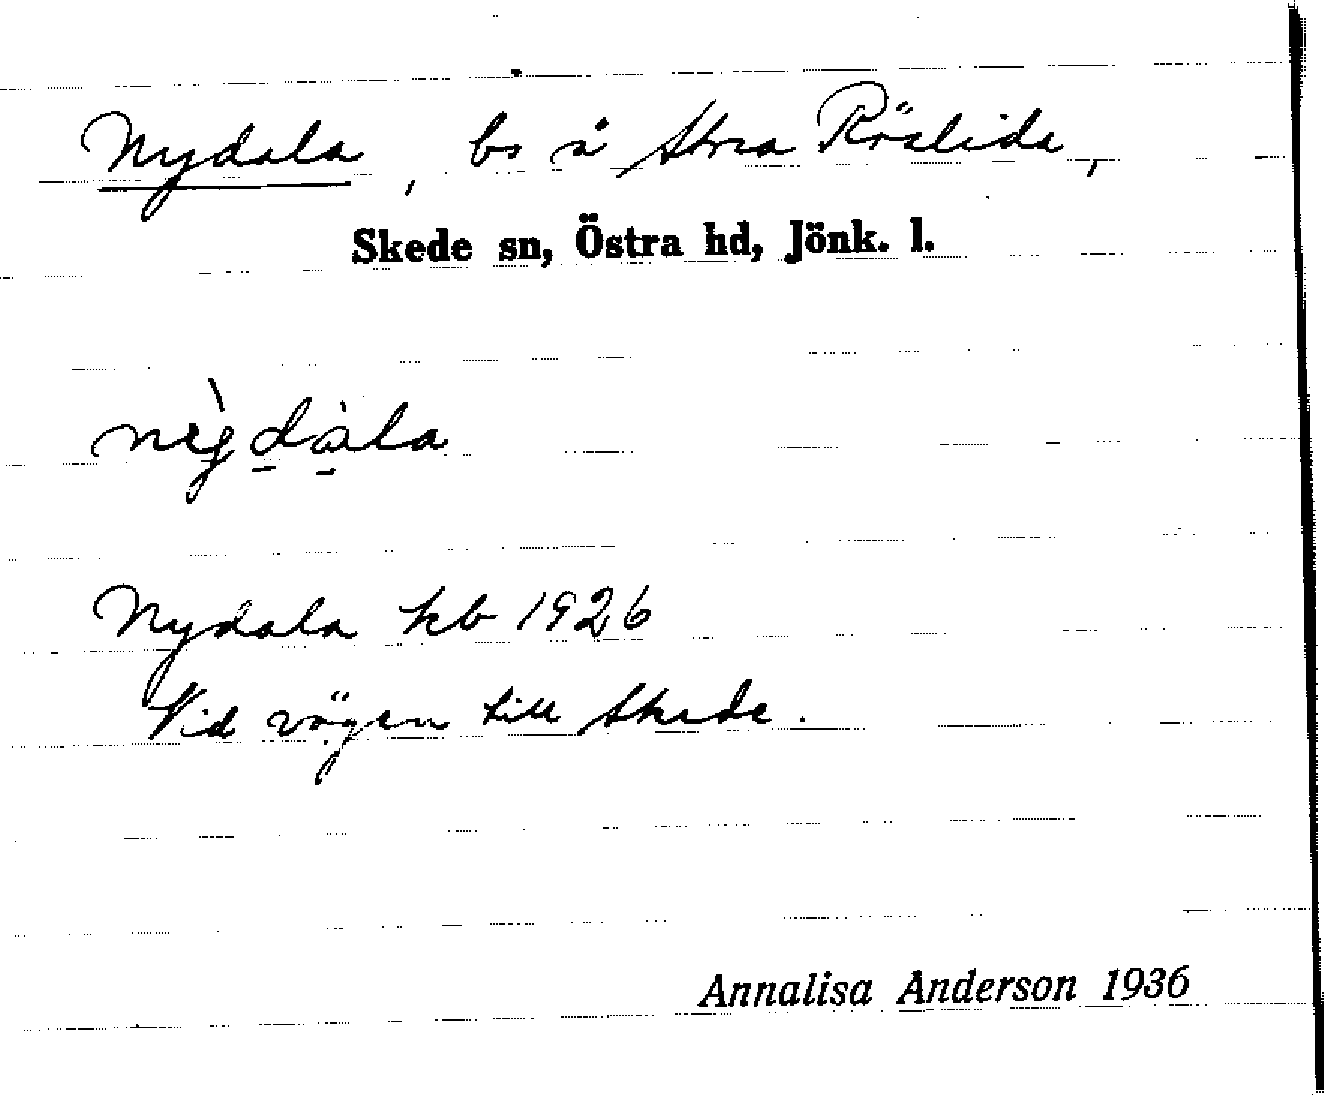 Nydala, bs å Stora Röslida,
Skede sn, Östra hd, Jönk. l.
Nydala kb 1926
Vid vägen till Skede.
Annalisa Anderson 1936